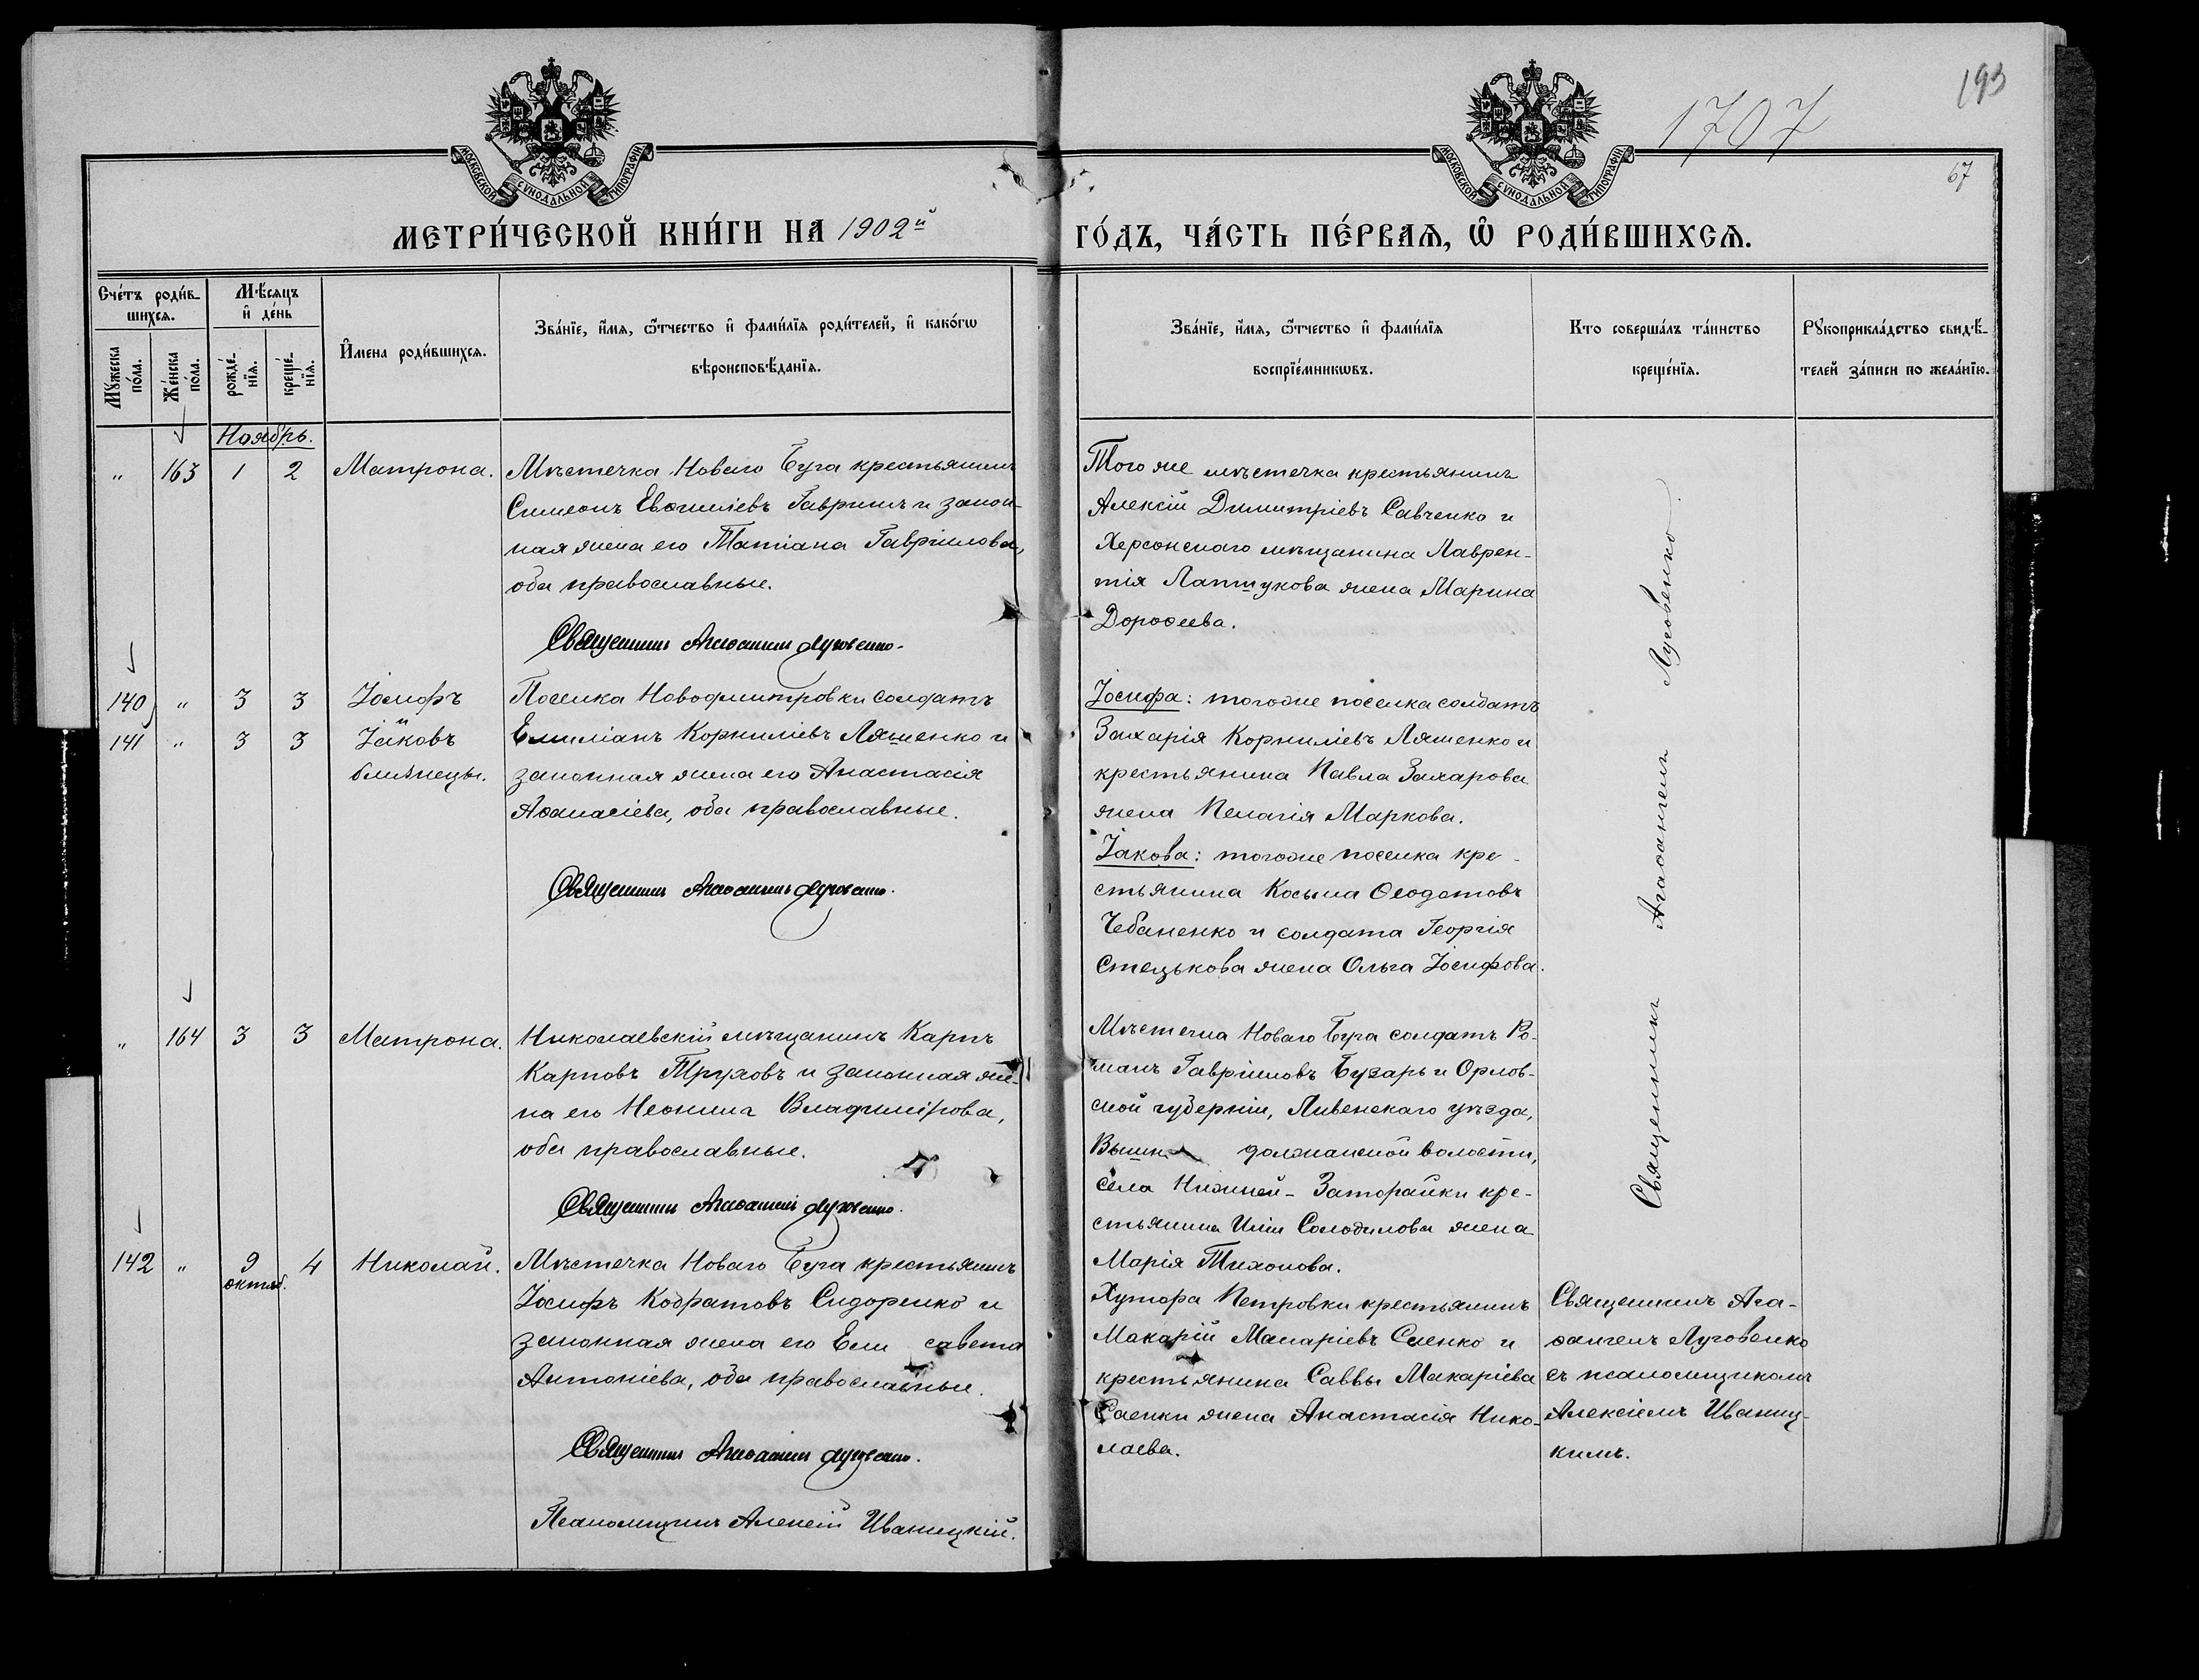 1707
193
67
МОСКОВСКОЙ СѴНОДАЛЬНОЙ ТИПОГРАФІИ
МОСКОВСКОЙ СѴНОДАЛЬНОЙ ТИПОГРАФІИ
МЕТРИ́ЧЕСКОЙ КНИ́ГИ НА 1902й ГО́ДЪ, ЧА́СТЬ ПЕ́РВАѦ, Ѡ҆ РОДИ́ВШИХСѦ.
Сче́тъ роди́вшихсѧ.
Мꙋ́жеска по́ла.
Же́нска по́ла.
Мѣ́сѧцъ и҆ де́нь
рожде́нїѧ.
креще́нїѧ.
И҆мена роди́вшихсѧ.
Зва́нїе, и҆́мѧ, ѻ҆́тчество и҆ фами́лїѧ роди́телей, и҆ како́гѡ
вѣроисповѣ́данїѧ.
Зва́нїе, и҆́мѧ, ѻ҆́тчество и҆ фами́лїѧ
воспрїе́мникѡвъ.
Кто соверша́лъ та́инство
креще́нїѧ.
Рꙋкоприкла́дство свидѣ́-
телей за́писи по жела́нїю.
Ноябрь.
" 163 1 2 Матрона.
Мѣстечка Новаго Буга крестьянинъ
Симеонъ Евѳиміевъ Гавришъ и закон-
ная жена его Татіана Гавріилова,
оба православные.
Священникъ Агаѳангелъ Луговенко.
Того же мѣстечка крестьянинъ
Алексій Димитріевъ Савченко и
Херсонскаго мѣщанина Лаврен-
тія Лапшукова жена Марина
Дороѳеева.
140 " 3 3 Іосифъ
и
141 " 3 3 Іаковъ
близнецы.
Поселка Новодмитровки солдатъ
Емиліанъ Корниліевъ Ляшенко и
законная жена его Анастасія
Аѳанасіева, оба православные.
Священникъ Агаѳангелъ Луговенко.
Іосифа: тогоже поселка солдатъ
Захарія Корниліевъ Ляшенко и
крестьянина Павла Захарова
жена Пелагія Маркова.
Іакова: тогоже поселка кре-
стьянина Косьма Ѳеодотовъ
Чебаненко и солдата Георгія
Стецькова жена Ольга Іосифова.
" 164 3 3 Матрона.
Николаевскій мѣщанинъ Карпъ
Карповъ Труховъ и законная же-
на его Неонила Владимірова,
оба православные.
Священникъ Агаѳангелъ Луговенко.
Мѣстечка Новаго Буга солдатъ Ро-
манъ Гавріиловъ Бузарь и Орлов-
ской губерніи, Ливенскаго уѣзда,
должанской волости,
села Нижней-Заторайки кре-
стьянина Иліи Солодилова жена
Марія Тихонова.
Священникъ Агаѳангелъ Луговенко.
142 " 9 октяб. 4 Николай.
Мѣстечка Новаго Буга крестьянинъ
Іосифъ Кодратовъ Сидоренко и
законная жена его Ели савета
Антоніева, оба православные.
Священникъ Агаѳангелъ Луговенко.
Псаломщикъ Алексій Иваницкій.
Хутора Петровки крестьянинъ
Макарій Макаріевъ Саенко и
крестьянина Саввы Макаріева
Саенки жена Анастасія Нико-
лаева.
Священникъ Ага-
ѳангелъ Луговенко
съ псаломщикомъ
Алексіемъ Иваниц-
кимъ.